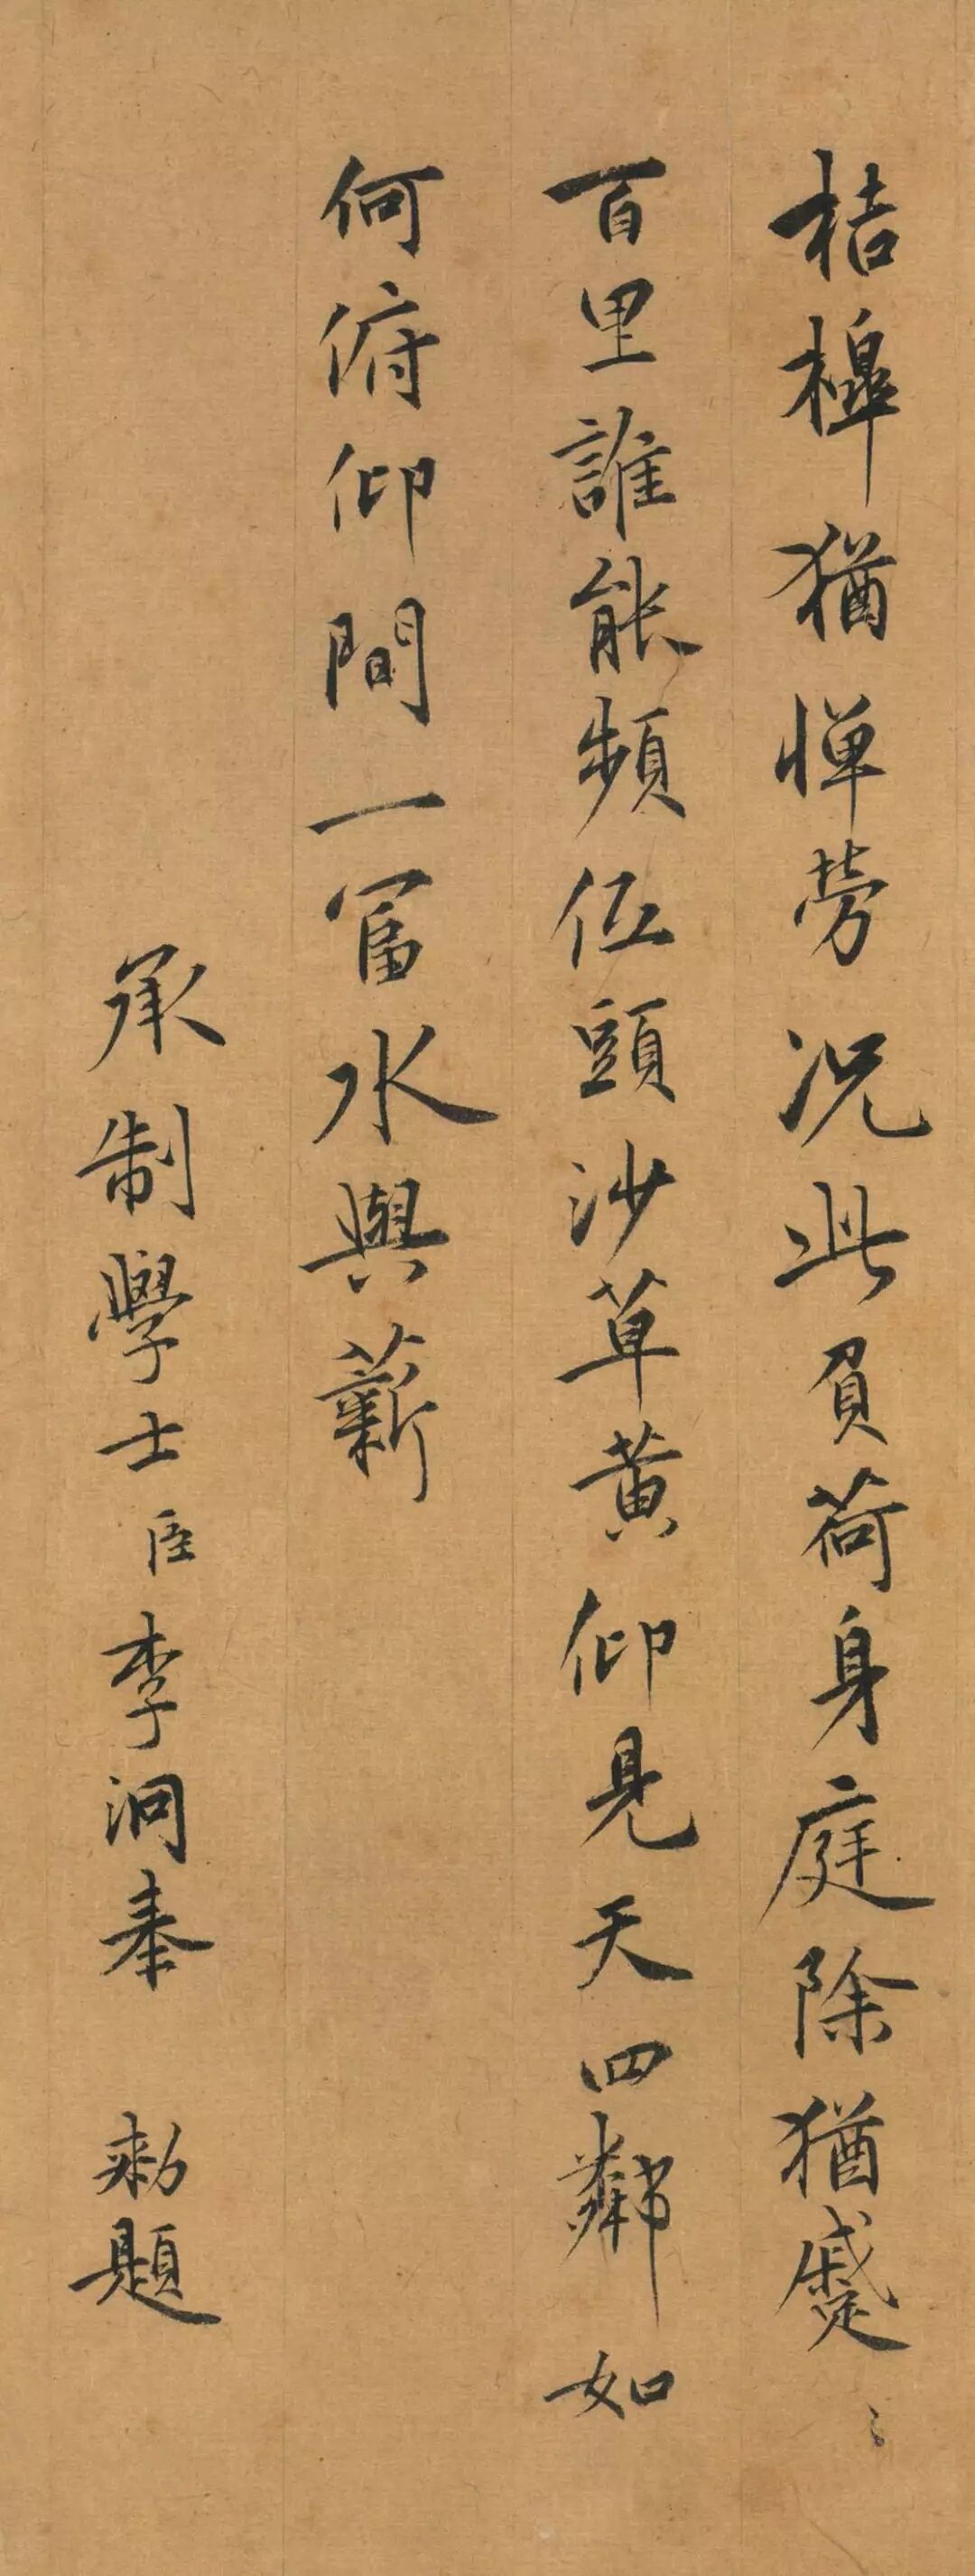 桔槹猶憚勞况此負荷身庭除猶蹙〻
百里誰能頻低頭沙草黄仰見天四鄰如
何俯仰間一富水與薪
承制學士臣李泂奉 勑題